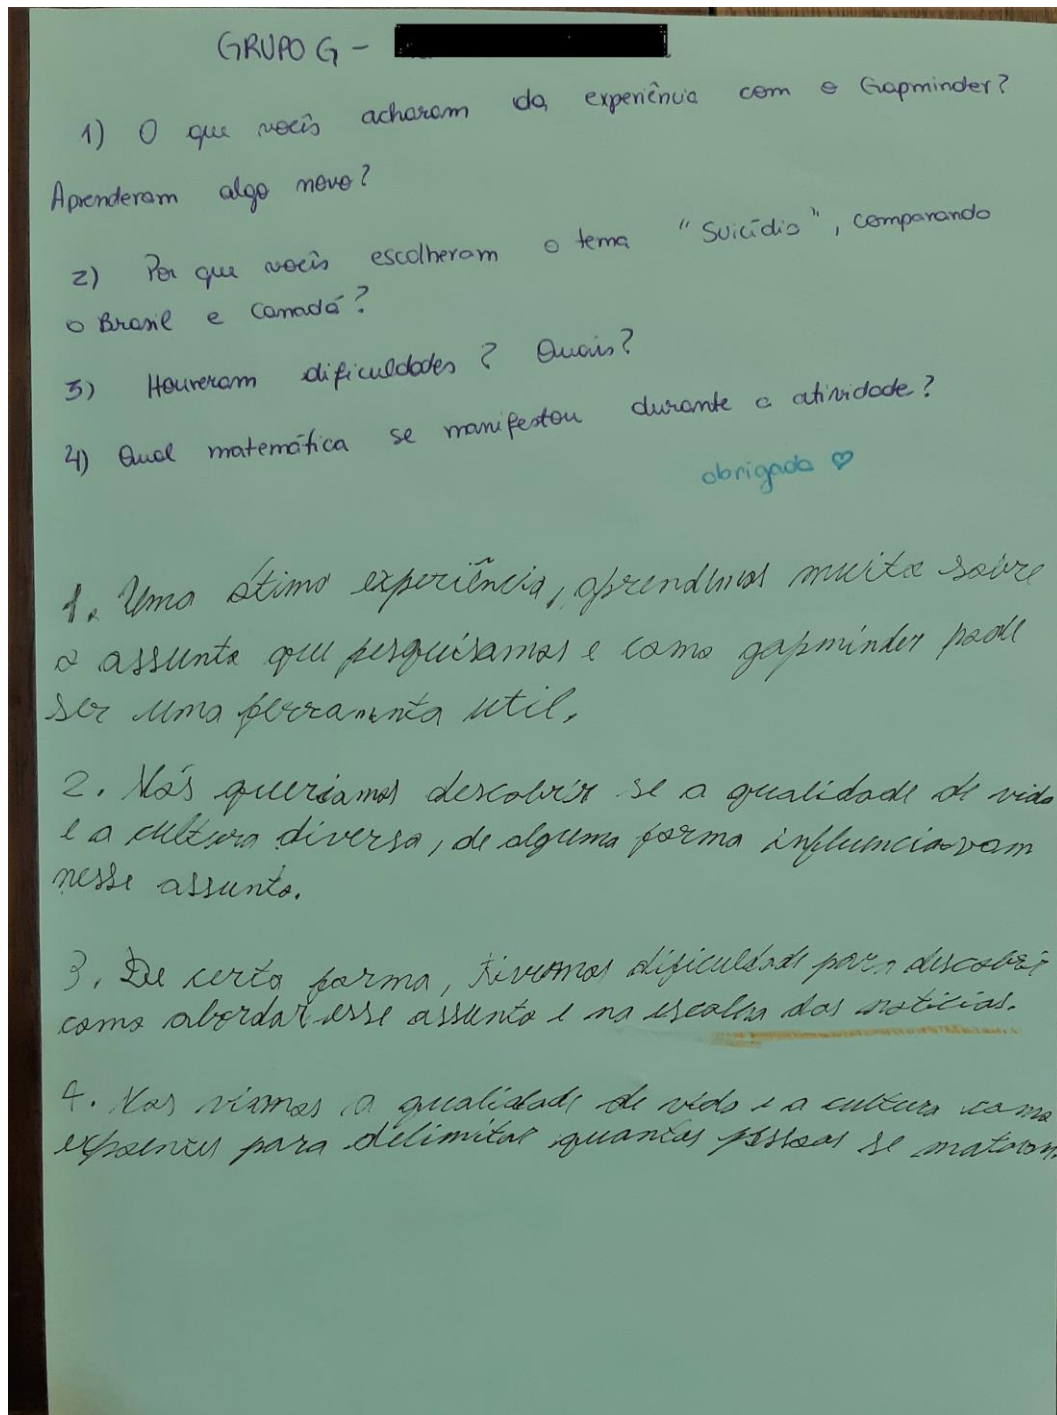 GRUPO G -
1) O que vocês acharam da experiência com o Gapminder?
Aprenderam algo novo?
2) Por que vocês escolheram o tema "Suicídio", comparando
o Brasil e Canadá?
3) Houveram dificuldades? Quais?
4) Qual matemática se manifestou durante a atividade?
obrigada ♡
1. Uma ótima experiência, aprendemos muito sobre
o assunto que pesquisamos e como gapminder pode
ser uma ferramenta util.
2. Nós queriamos descobrir se a qualidade de vida
e a cultura diversa, de alguma forma influenciavam
nesse assunto.
3. De certa forma, tivemos dificuldade para descobrir
como abordar esse assunto e na escolha das notícias.
4. Nos viamos a qualidade de vida e a cultura como
expoentes para delimitar quantas pessoas se matavam.